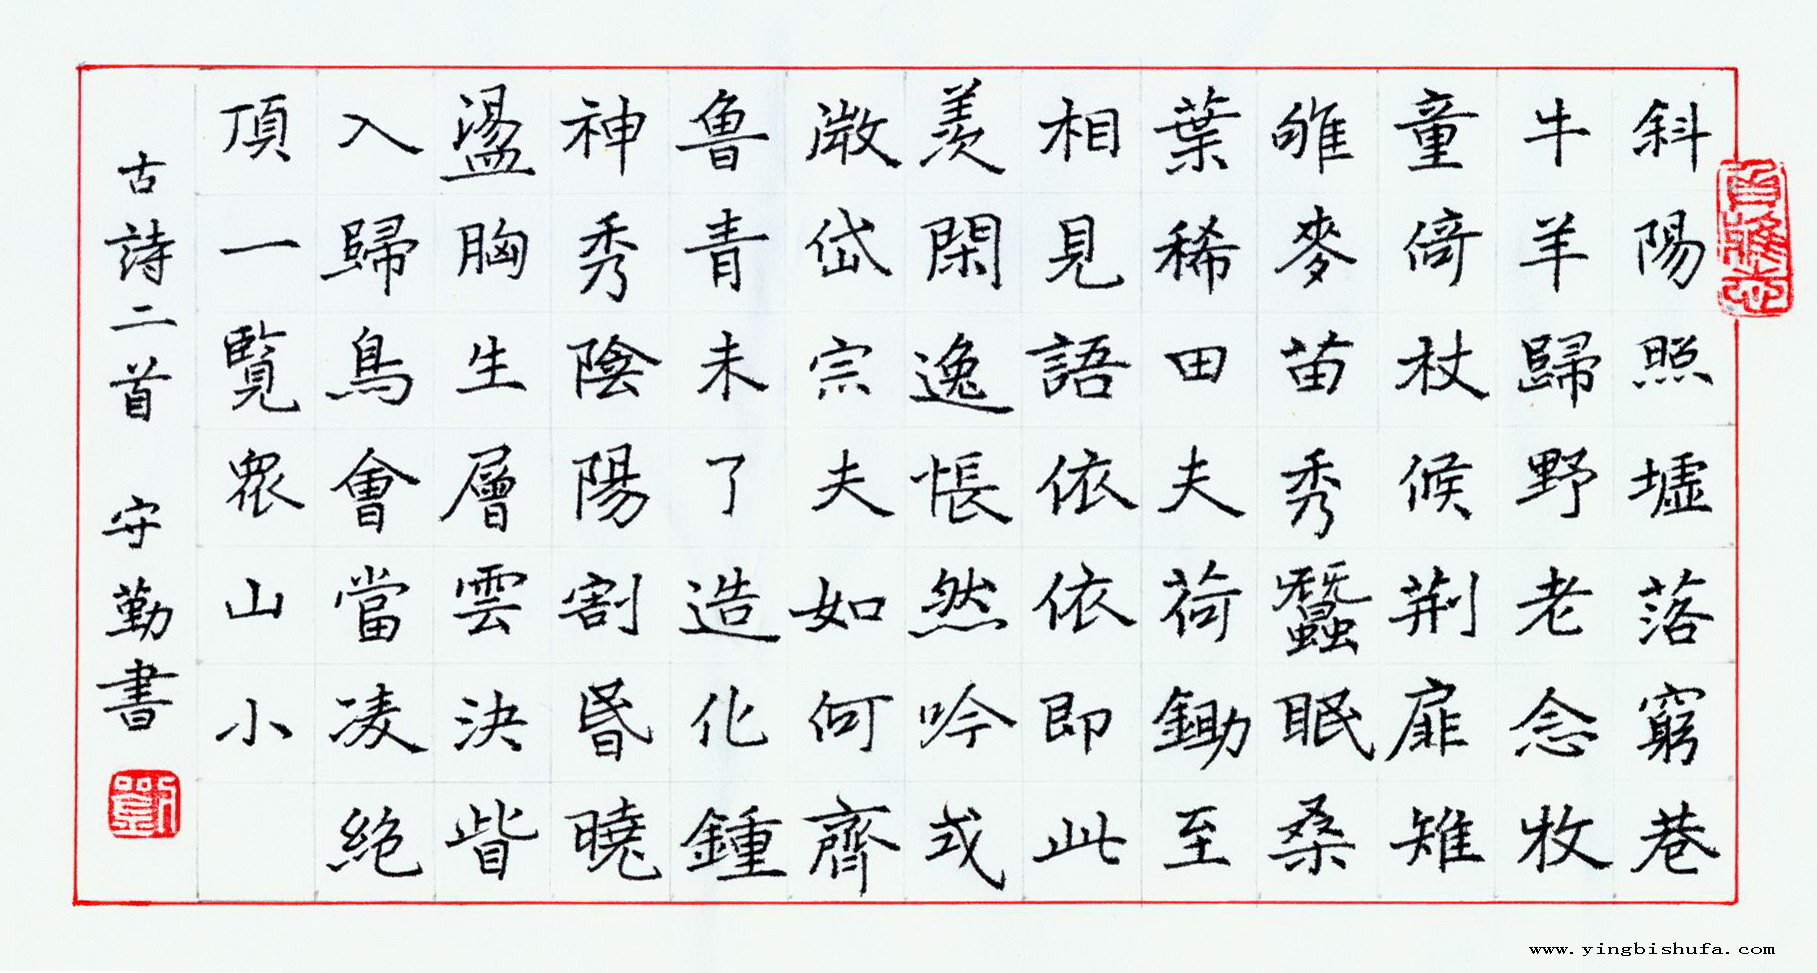 斜陽照墟落窮巷
牛羊歸野老念牧
童倚杖候荆扉雉
雊麥苗秀蠶眠桑
葉稀田夫荷鋤至
相見語依依即此
羨閑逸悵然吟式
微岱宗夫如何齊
魯青未了造化鍾
神秀陰陽割昏曉
盪胸生層雲決眥
入歸鳥會當凌絶
頂一覽衆山小
古詩二首 守勤書
www.yingbishufa.com